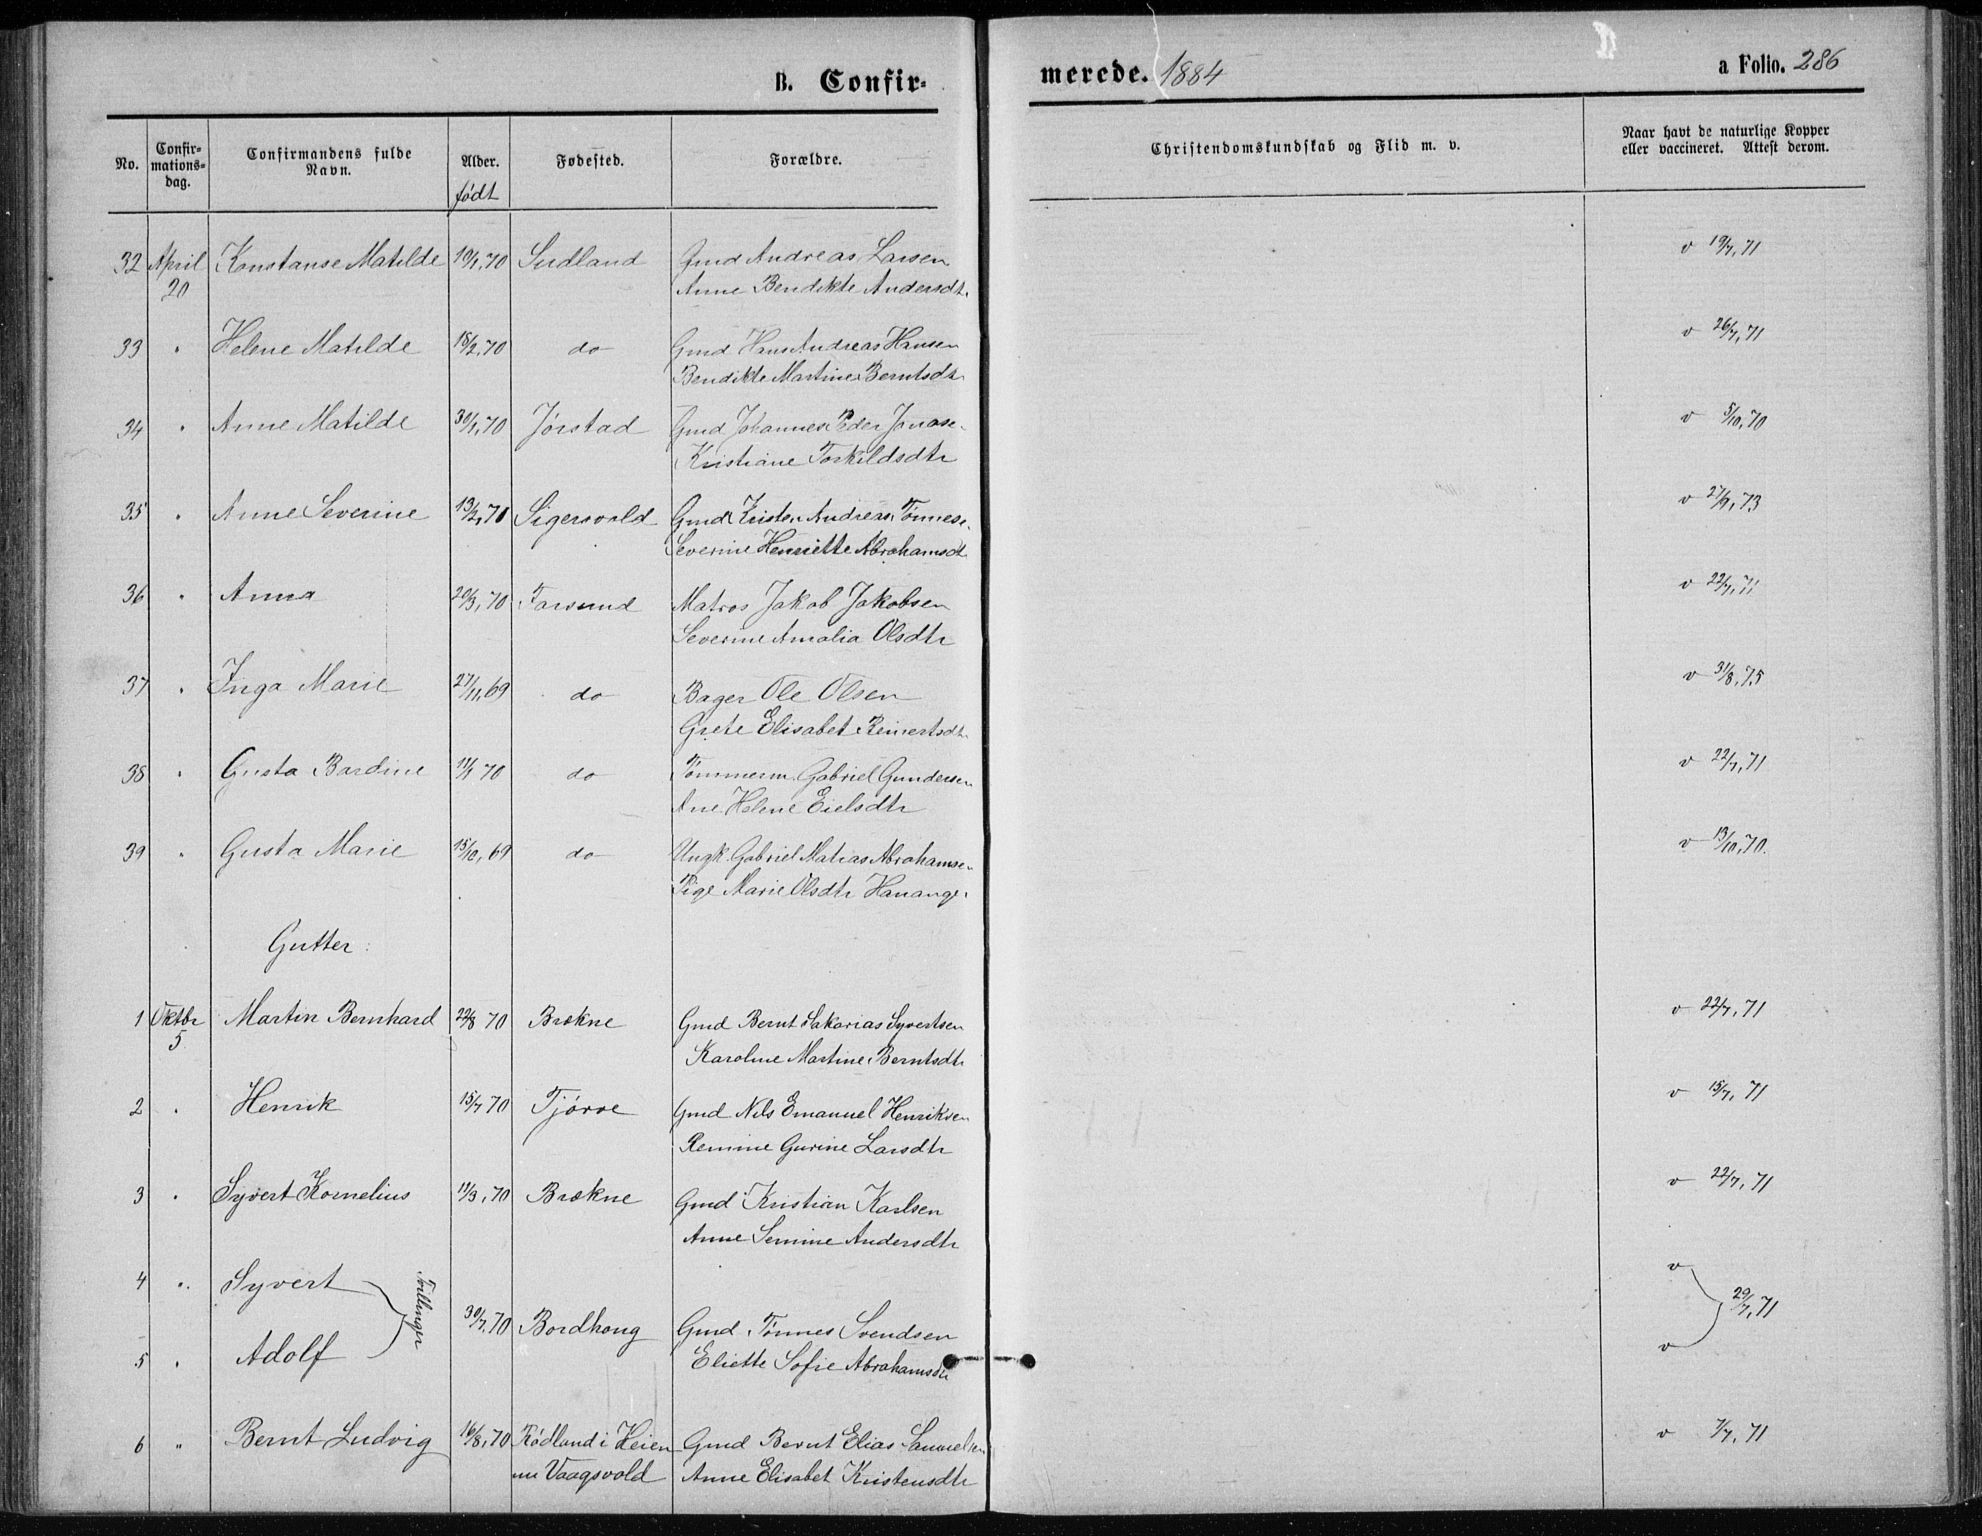 B. Confir-
merede. 1884
a Folio. 286
No.
Confir-
mations-
dag.
Confirmandens fulde
Navn.
Alder.
født
Fødested.
Forældre.
Christendomskundskab og Flid m. v.
Naar havt de naturlige Kopper
eller vaccineret. Attest derom.
32 April Konstanse Matilde 19/1,70 Sudland Gmd Andreas Larsen v 19/7,71
20 Anne Bendikte Andersdtr
33 " Helene Matilde 18/2,70 do Gmd Hans Andreas Hansen v 26/7,71
Bendikte Martine Berntsdtr
34 " Anne Matilde 30/1,70 Jørstad Gmd Johannes Peder Jonase. v 5/10,70
Kristiane Torkildsdtr
35 " Anne Severine 13/2,70 Sigersvold Gmd Kristen Andreas Tønnese. v 27/9,73
Severine Henriette Abrahamsdt
36 " Anna 20/3,70 Farsund Matros Jakob Jakobsen v 22/7,71
Severine Amalia Olsdtr
37 " Inga Marie 27/11,69 do Bager Ole Olsen v 31/8,75
Grete Elisabet Reinertsdtr
38 " Gusta Bardine 11/1 70 do Tømmerm. Gabriel Gundersen v 22/7,71
Ane Helene Eielsdtr
39 " Gusta Marie 15/10,69 do Ungk. Gabriel Matias Abrahamsen v 13/10,70.
Pige Marie Olsdtr Hananger
Gutter:
1 Oktbr Martin Bernhard 22/8 70 Brekne Gmd Bernt Sakarias Syvertsen v 22/7,71
5 Karoline Martine Berntsdtr
2 " Henrik 15/7 70 Tjørve Gmd Nils Emanuel Henriksen v 15/7,71
Remine Gurine Larsdtr
3 " Syvert Kornelius 11/3,70 Brekne Gmd Kristian Karlsen v 22/7,71
Anne Semine Andersdtr
4 " Syvert v
Tvillinger 30/7,70 Bordhoug Gmd Tønnes Svendsen 29/7,71
5 " Adolf Eliette Sofie Abrahamsdtr v
6 " Bernt Ludvig 16/8,70 Rødland i Heien Gmd Bernt Elias Samuelsen v 7/7,71
nu Vaagsvold Anne Elisabet Kristensdtr